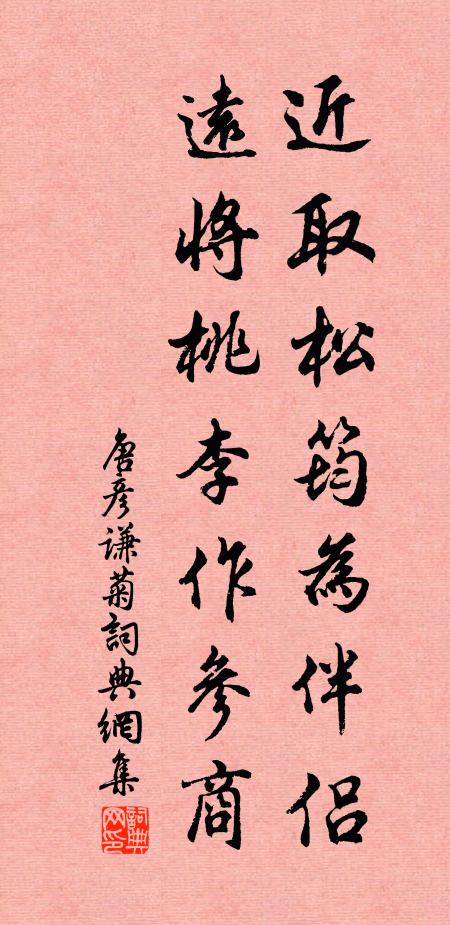 近取松筠為伴侶
遠將桃李作參商
唐彥謙菊詞典網集
詞典網印